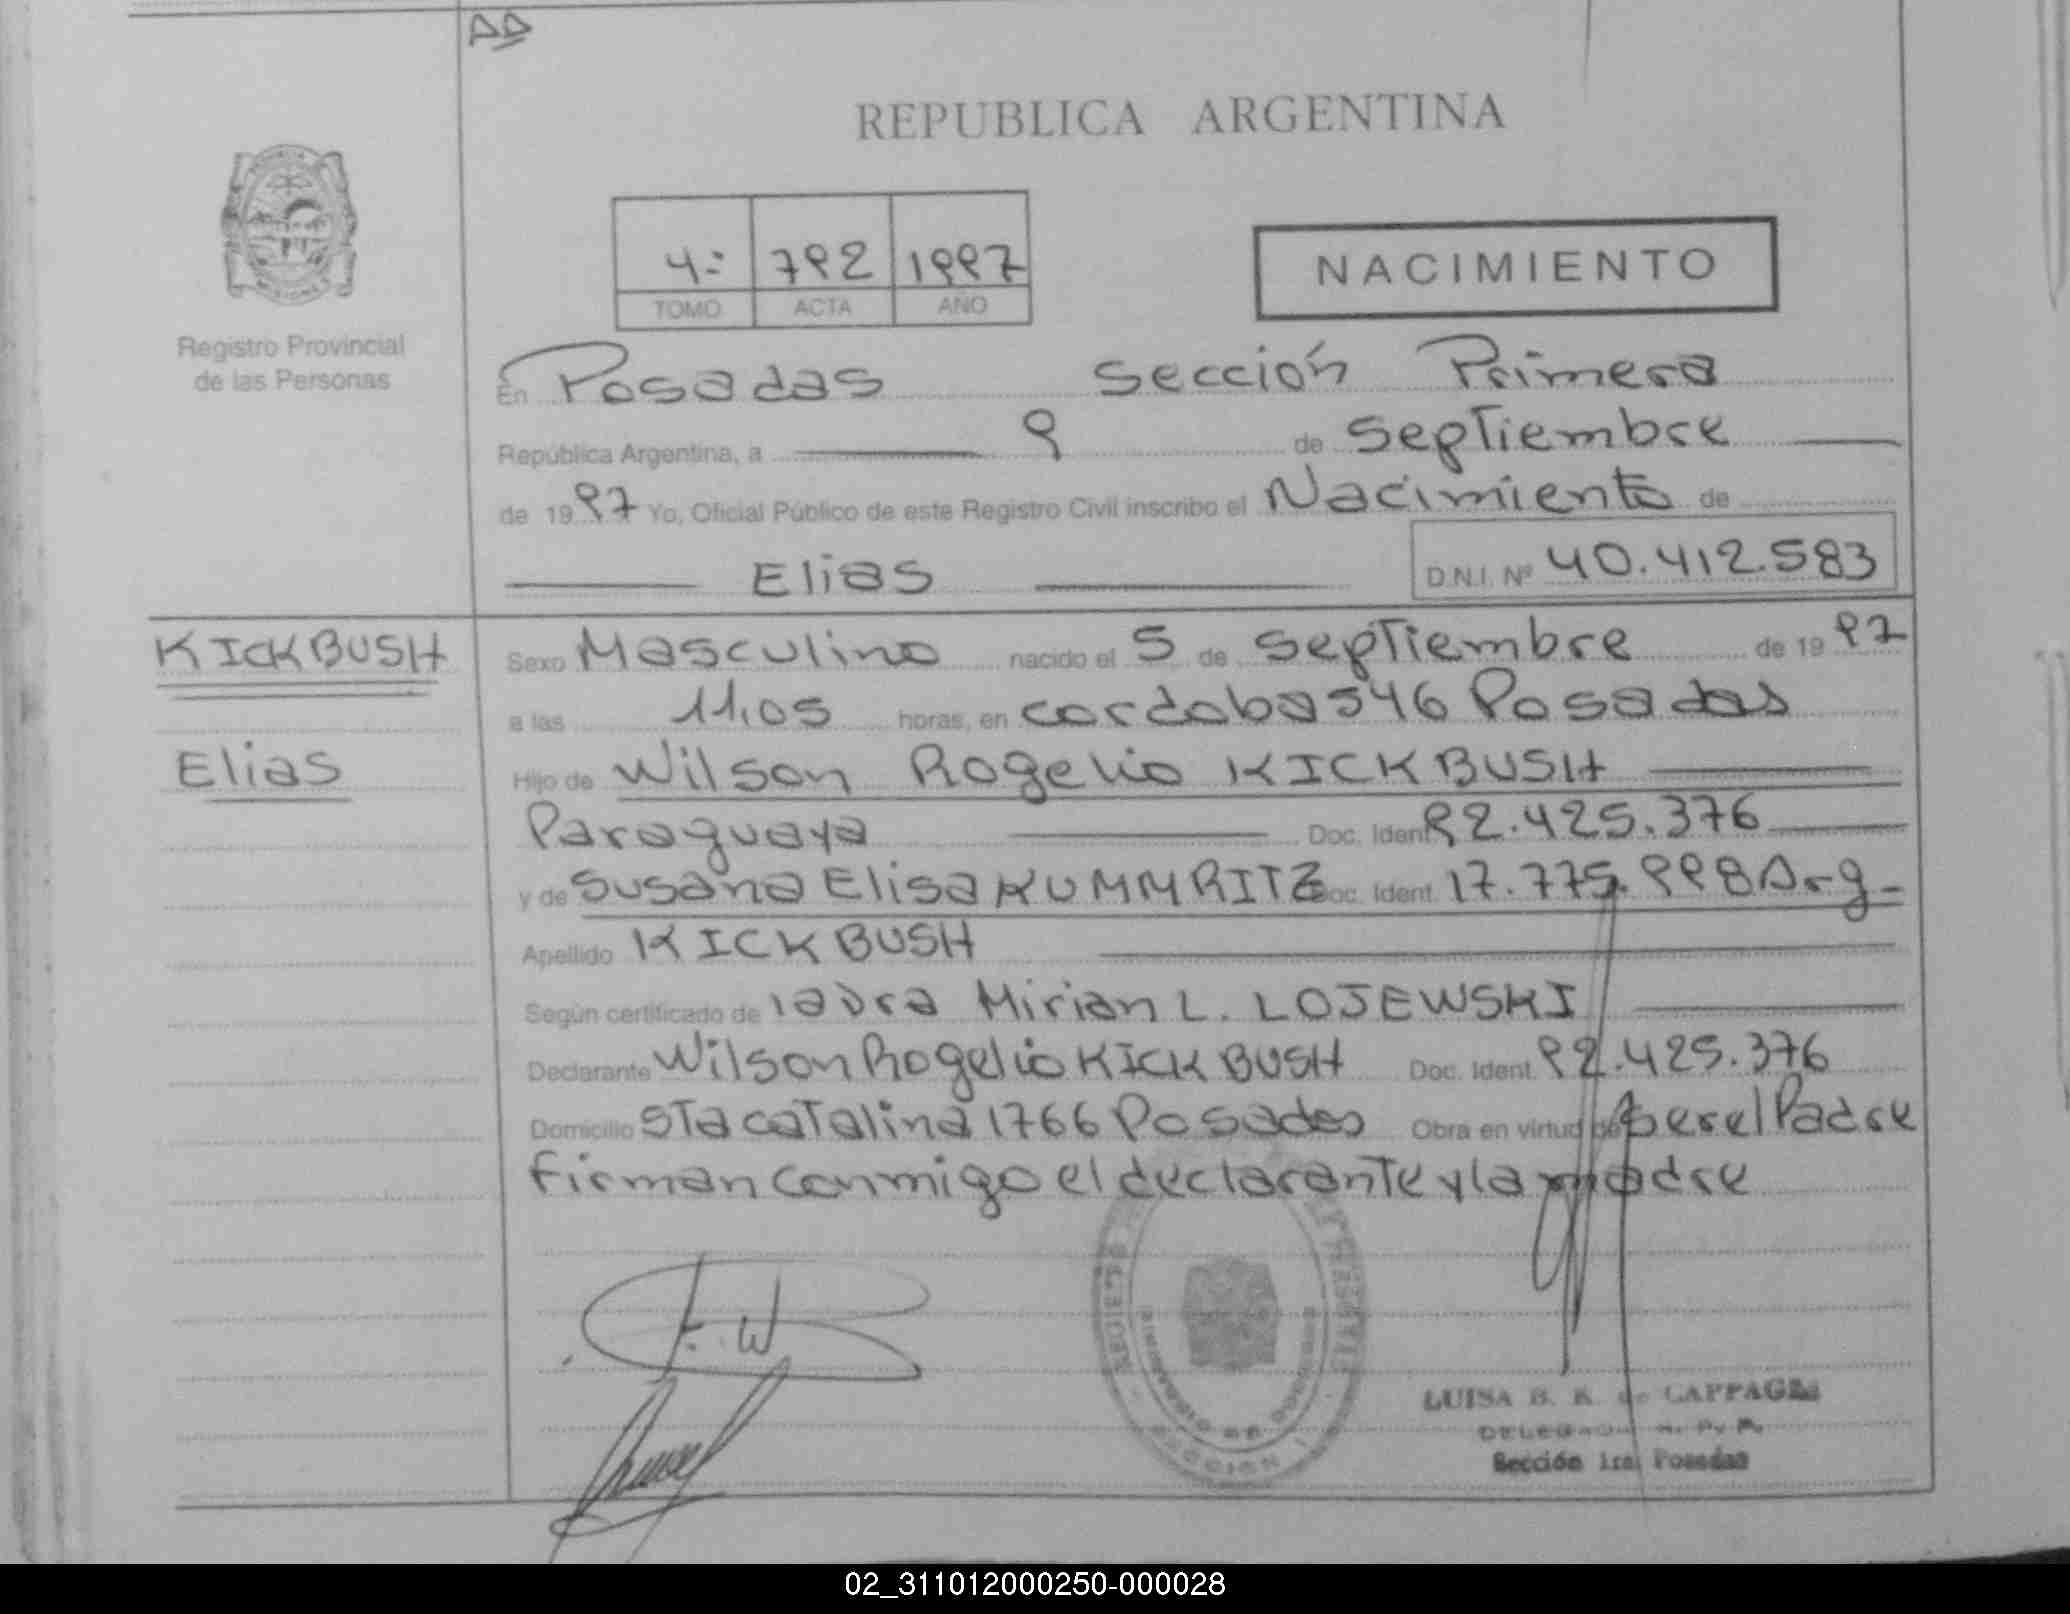 REPUBLICA ARGENTINA
4.= 792 1997
TOMO ACTA AÑO
NACIMIENTO
Registro Provincial
de las Personas
En Posadas Sección Primera
República Argentina, a 9 de Septiembre
de 1997 Yo, Oficial Público de este Registro Civil inscribo el Nacimiento de
Elias D.N.I. Nº 40.412.583
KICKBUSH
Elias
Sexo Masculino nacido el 5 de Septiembre de 1997
a las 11,05 horas, en cordoba 546 Posadas
Hijo de Wilson Rogelio KICKBUSH
Paraguaya Doc. Ident. 92.425.376
y de Susana Elisa KUMMRITZ Doc. Ident. 17.775.998 Arg-
Apellido KICKBUSH
Según certificado de la Dra Mirian L. LOJEWSKI
Declarante Wilson Rogelio KICKBUSH Doc. Ident. 92.425.376
Domicilio Sta catalina 1766 Posadas Obra en virtud de ser el Padre
Firman conmigo el declarante y la madre
LUISA B. K. de
Sección 1ra. Posadas
02_311012000250-000028